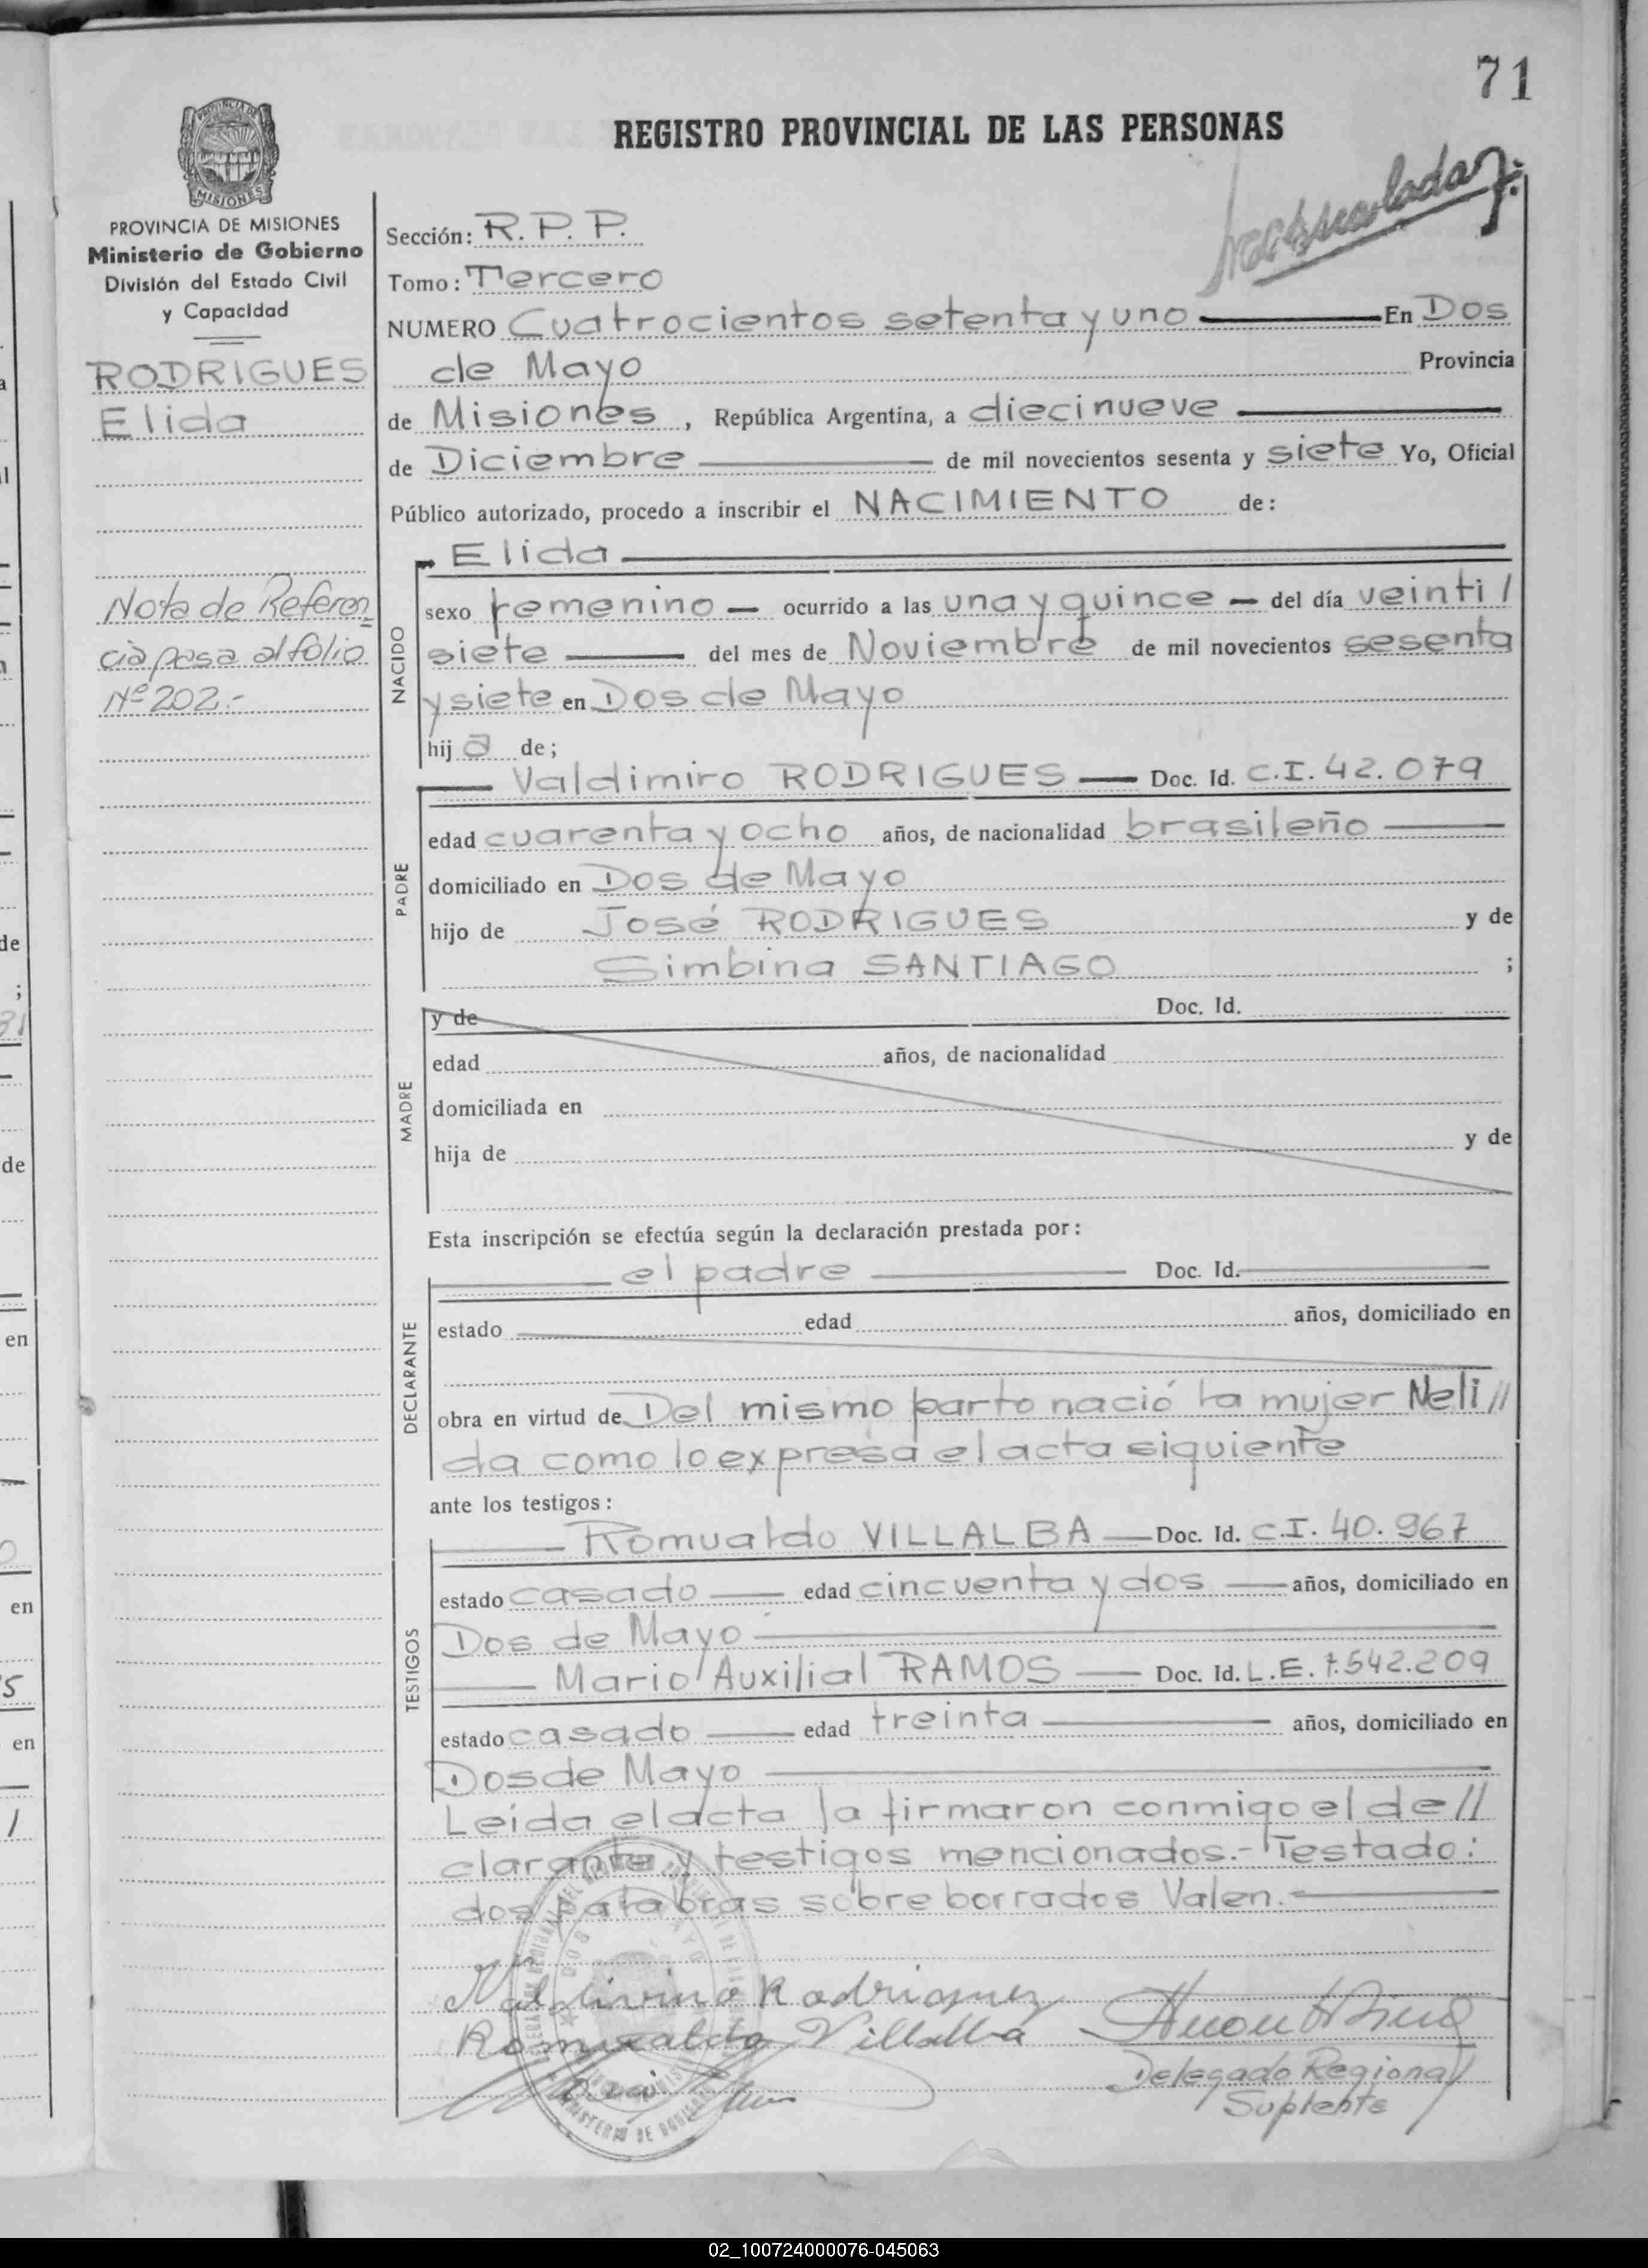 71
REGISTRO PROVINCIAL DE LAS PERSONAS
PROVINCIA DE MISIONES
Ministerio de Gobierno
División del Estado Civil
y Capacidad
RODRIGUES
Elida
Nota de Referen
cia pasa al folio
Nº 202.-
Sección: R. P. P.
Tomo: Tercero
NUMERO Cuatrocientos setenta y uno — En Dos
de Mayo Provincia
de Misiones, República Argentina, a diecinueve —
de Diciembre — de mil novecientos sesenta y siete Yo, Oficial
Público autorizado, procedo a inscribir el NACIMIENTO de:
NACIDO
Elida —
sexo femenino — ocurrido a las una y quince — del día veinti /
siete — del mes de Noviembre de mil novecientos sesenta
y siete en Dos de Mayo
hij a de;
PADRE
— Valdimiro RODRIGUES — Doc. Id. C.I. 42.079
edad cuarenta y ocho años, de nacionalidad brasileño —
domiciliado en Dos de Mayo
hijo de José RODRIGUES y de
Simbina SANTIAGO ;
MADRE
y de Doc. Id.
edad años, de nacionalidad
domiciliada en
hija de y de
Esta inscripción se efectúa según la declaración prestada por:
DECLARANTE
— el padre — Doc. Id. —
estado edad años, domiciliado en
obra en virtud de Del mismo parto nació la mujer Neli //
da como lo expresa el acta siguiente
ante los testigos:
TESTIGOS
— Romualdo VILLALBA — Doc. Id. C.I. 40.967
estado casado — edad cincuenta y dos — años, domiciliado en
Dos de Mayo —
— Mario Auxilial RAMOS — Doc. Id. L.E. 7.542.209
estado casado — edad treinta — años, domiciliado en
Dos de Mayo —
Leída el acta la firmaron conmigo el de //
clarante y testigos mencionados.- Testado:
dos palabras sobre borrados Valen. —
Valdivino Rodriguez
Romualdo Villalba
Delegado Regional
Suplente
02_100724000076-045063